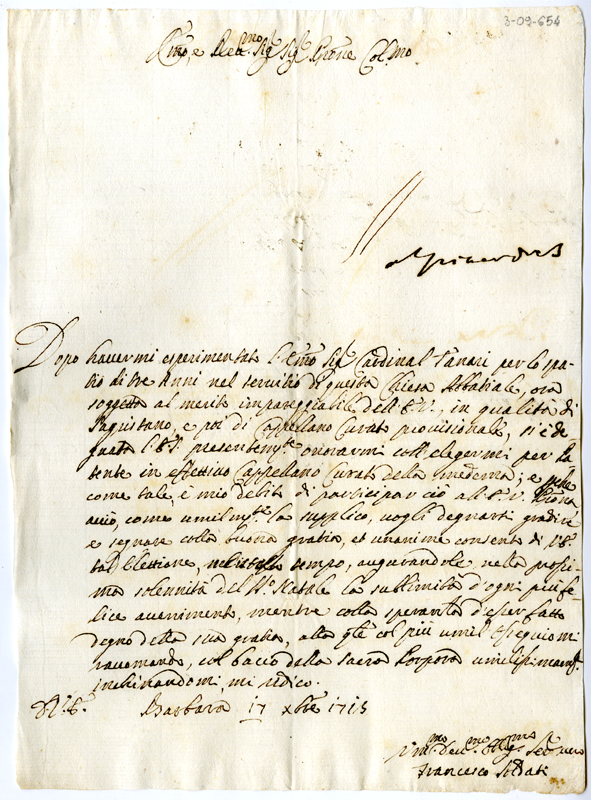 3-09-654
Em̃o, e Rev.mo Sig.r Sig.r Prone Col.mo
Dopo havermi esperimentato l'Em̃o Sig.r Cardinal Tanari per lo spa-
tio di tre Anni nel servitio di questa Chiesa Abatiale, ora
soggetta al merito impareggiabile dell'E.V., in qualità di
Sagristano, e poi di Cappellano Curato provisionale, si è de
gnata l'E.S. presentem.te onorarmi coll'elegermi per la
tente in effettivo Cappellano Curato della medema; e
come tale, è mio debito di participar ciò all'E.V.
acciò, come umilm.te la supplico, vogli degnarsi gradire
e segnare colla buona gratia, et unanime consenso di V.E.
tal' Elettione, nell'istesso tempo, augurandole, nella prossi-
ma solennità del S.o Natale la sublimità d'ogni più fe-
lice avenimento, mentre colla speranza d'esser fatto
degno della sua gratia, alla q̃le col più umil' ossequio mi
racomando, col bacio della Sacra Porpora umilissimam.te
inchinandomi, mi redico.
D. V. E. Barbara 17 Xbre 1715
Um.mo Dev.mo Obblig.mo Ser.re vero
Francesco Soldati